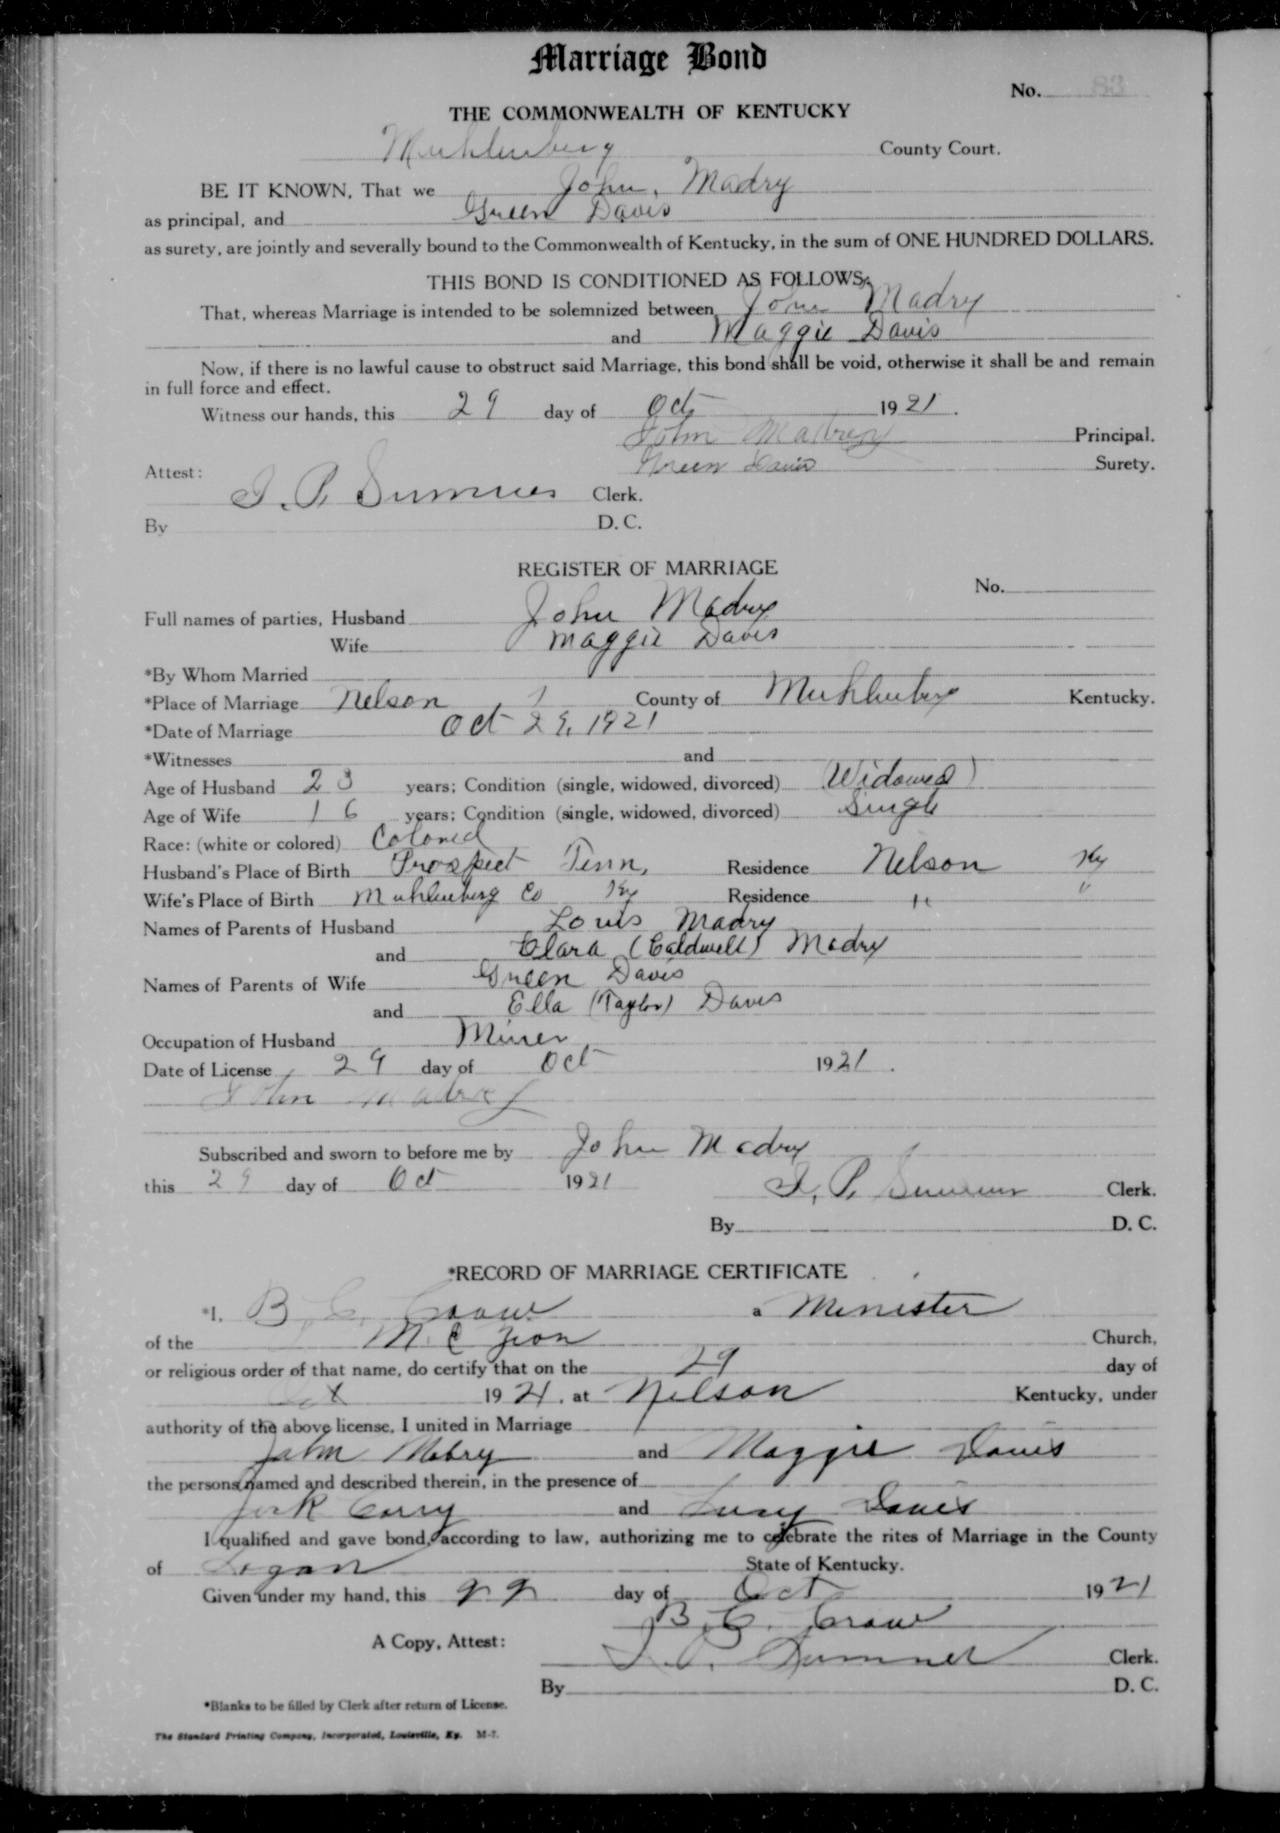 Marriage Bond
No. 83
THE COMMONWEALTH OF KENTUCKY
Muhlenberg County Court.
BE IT KNOWN, That we John Madry
as principal, and Green Davis
as surety, are jointly and severally bound to the Commonwealth of Kentucky, in the sum of ONE HUNDRED DOLLARS.
THIS BOND IS CONDITIONED AS FOLLOWS:
That, whereas Marriage is intended to be solemnized between John Madry
and Maggie Davis
Now, if there is no lawful cause to obstruct said Marriage, this bond shall be void, otherwise it shall be and remain
in full force and effect.
Witness our hands, this 29 day of Oct 1921.
John Principal.
Green Davis Surety.
Attest:
Clerk.
By D. C.
REGISTER OF MARRIAGE
No.
Full names of parties, Husband John Madry
Wife Maggie Davis
*By Whom Married
*Place of Marriage Nelson, County of Muhlenberg Kentucky.
*Date of Marriage Oct 29, 1921
*Witnesses and
Age of Husband 23 years; Condition (single, widowed, divorced) (Widowed)
Age of Wife 16 years; Condition (single, widowed, divorced) Single
Race: (white or colored) Colored
Husband's Place of Birth Prospect Tenn, Residence Nelson Ky
Wife's Place of Birth Muhlenberg Co Ky Residence " "
Names of Parents of Husband Louis Madry
and Clara (Caldwell) Madry
Names of Parents of Wife Green Davis
and Ella (Taylor) Davis
Occupation of Husband Miner
Date of License 29 day of Oct 1921.
John
Subscribed and sworn to before me by John Madry
this 29 day of Oct 1921
Clerk.
By D. C.
*RECORD OF MARRIAGE CERTIFICATE
*I, B. C. a Minister
of the M. E Zion Church,
or religious order of that name, do certify that on the 29 day of
Oct 1921, at Nelson Kentucky, under
authority of the above license, I united in Marriage
John Mabry and Maggie Davis
the persons named and described therein, in the presence of
and Lucy Davis
I qualified and gave bond, according to law, authorizing me to celebrate the rites of Marriage in the County
of Logan State of Kentucky.
Given under my hand, this 29 day of Oct 1921
B. C.
A Copy, Attest: Clerk.
By D. C.
*Blanks to be filled by Clerk after return of License.
The Standard Printing Company, Incorporated, Louisville, Ky. M-7.